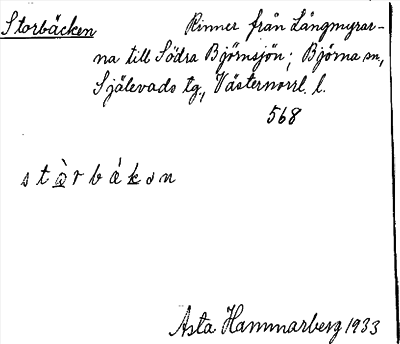 Storbäcken Rinner från Långmyrar-
na till Södra Björnsjön; Björna sn,
Själevads tg., Västernorrl. l.
568
stɷ̀rbákən
Asta Hammarberg 1933